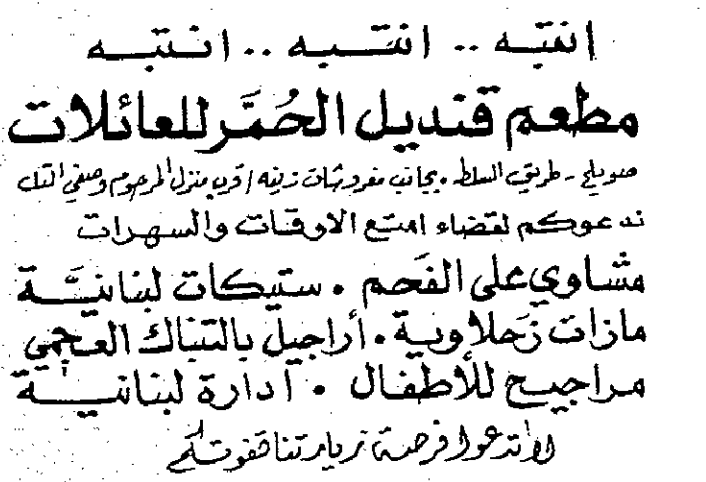 انتبه .. انتبه .. انتبه
مطعم قنديل الحُمَّر للعائلات
صويلح - طريق السلط . بجانب مفروشات زينه / قرب منزل المرحوم وصفي التل
ندعوكم لقضاء امتع الاوقات والسهرات
مشاوي على الفحم . ستيكات لبنانيَّة
مازات زحلاوية . أراجيل بالتنباك العجمي
مراجيح للأطفال . أدارة لبنانية
لا تدعوا فرصة زيارتنا تفوتكم